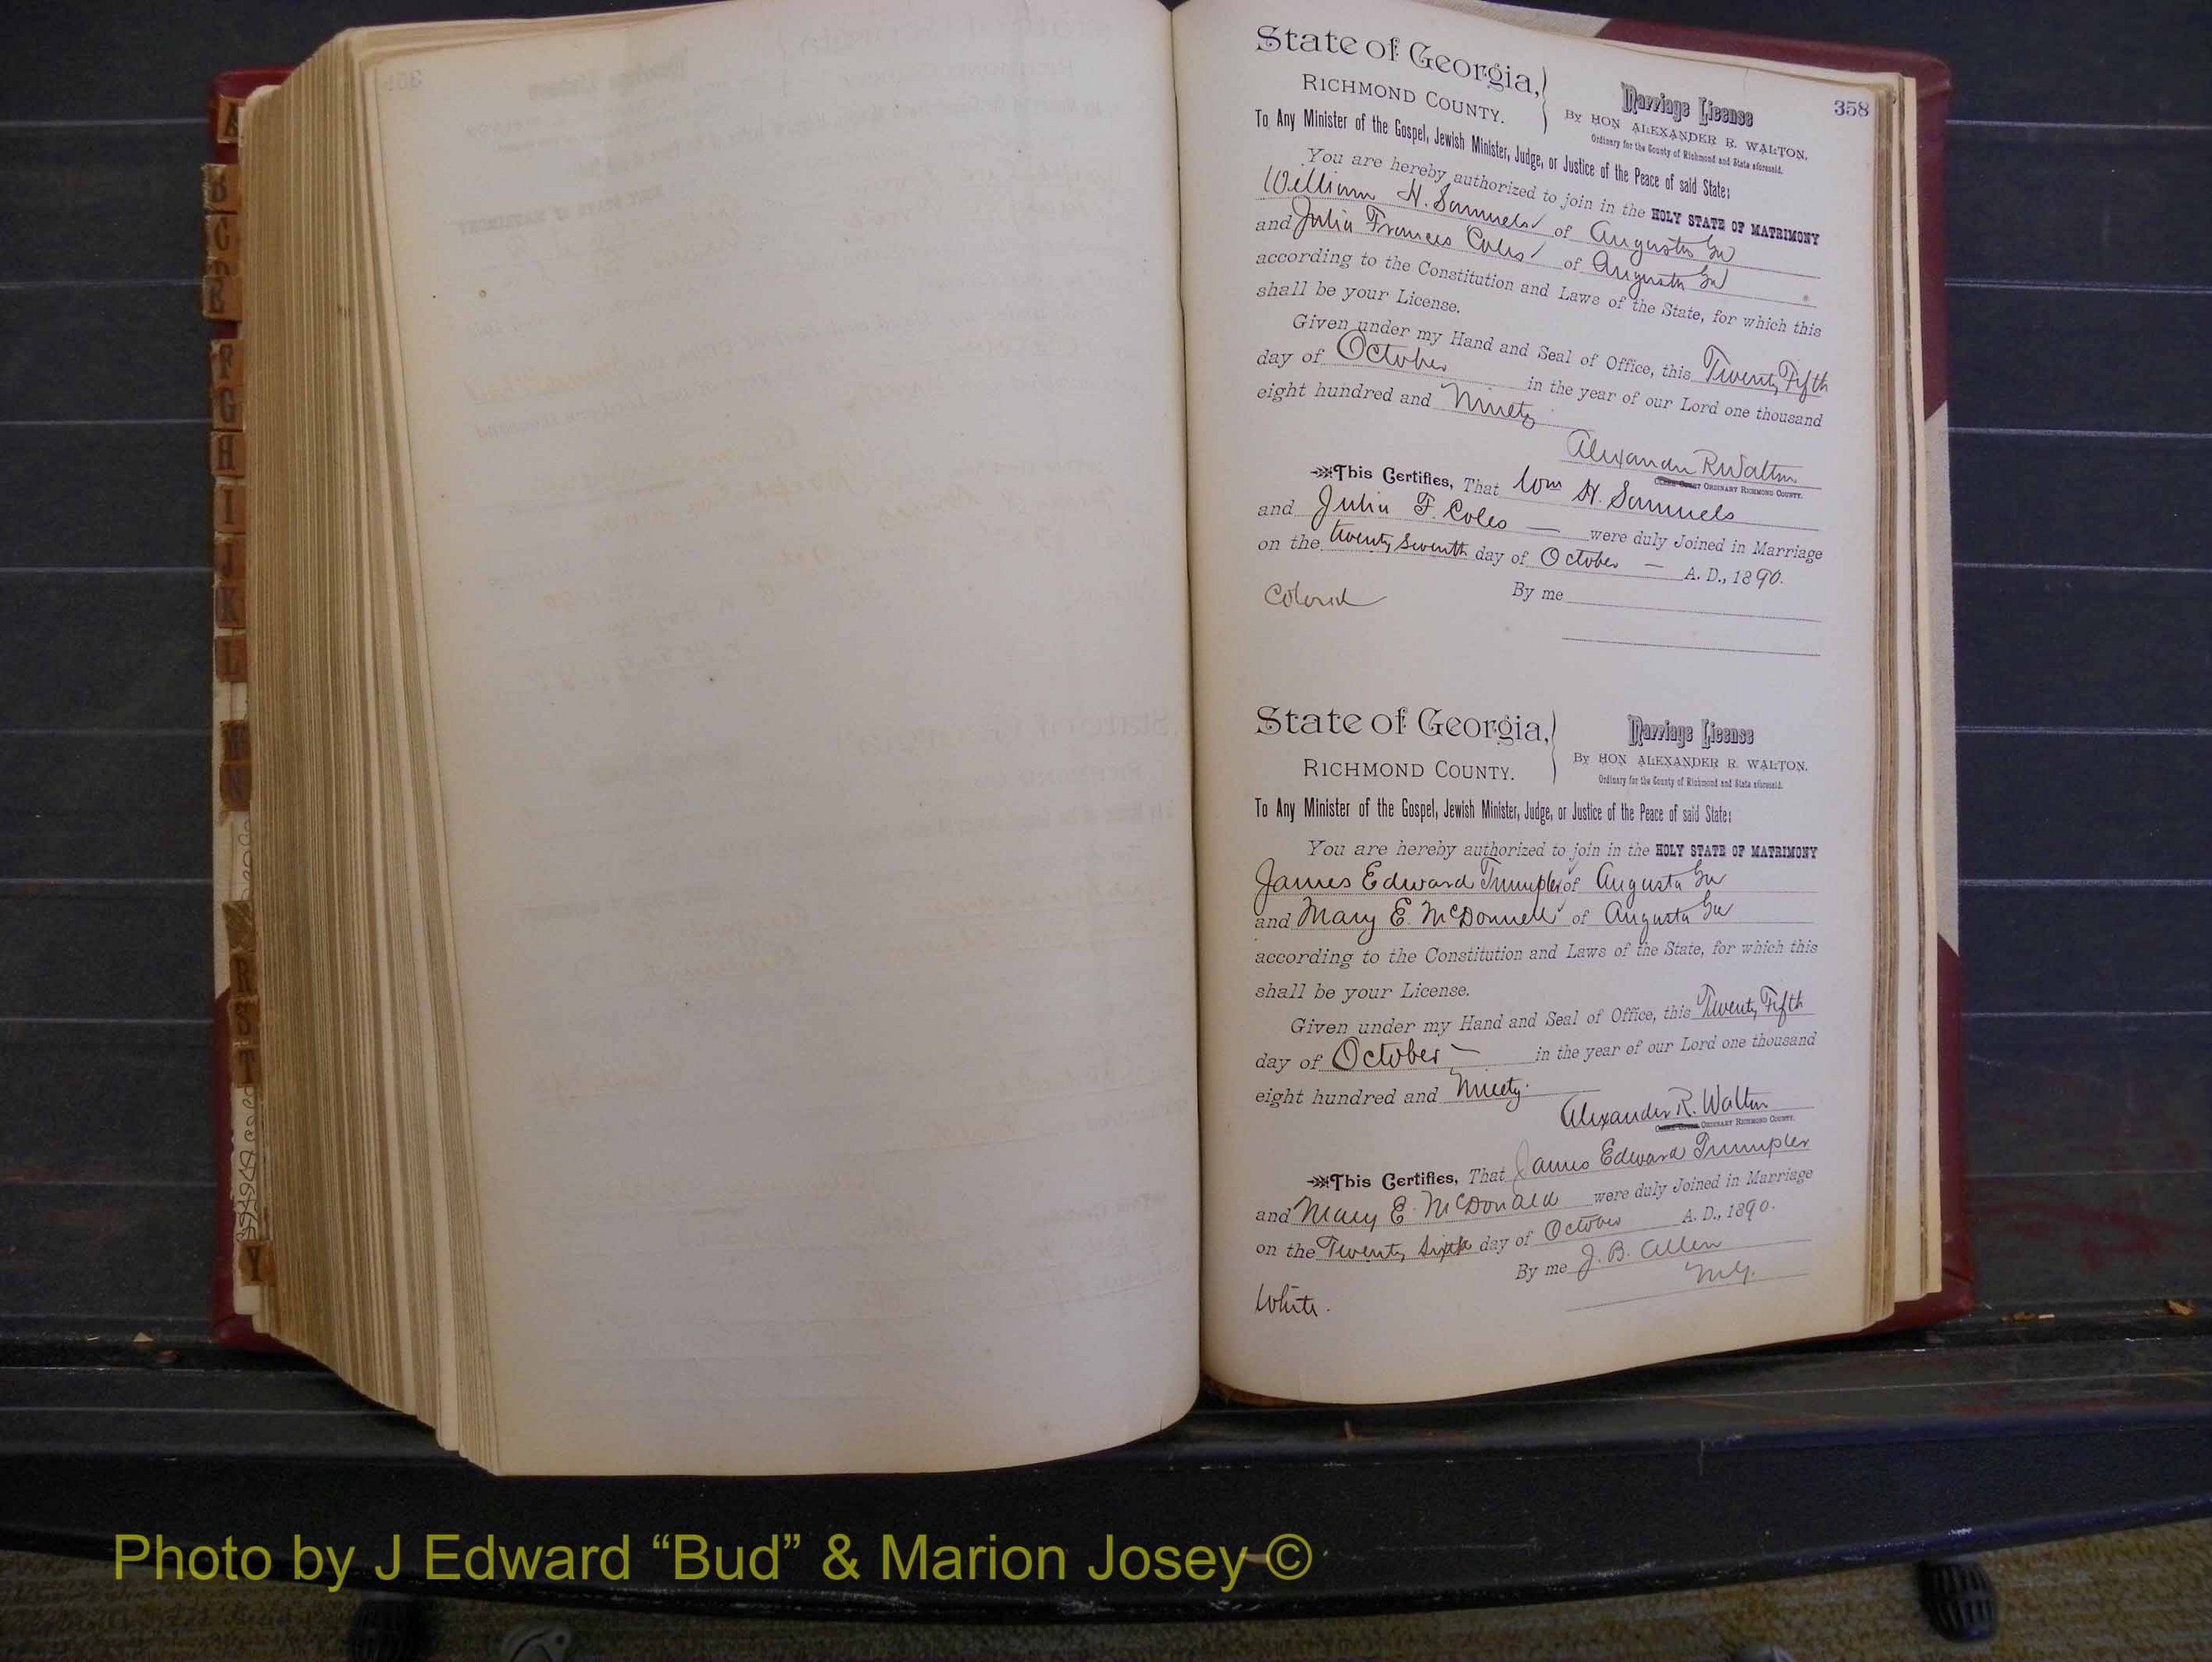 358
State of Georgia,
RICHMOND COUNTY.
Marriage License
By HON ALEXANDER R. WALTON,
Ordinary for the County of Richmond and State aforesaid.
To Any Minister of the Gospel, Jewish Minister, Judge, or Justice of the Peace of said State:
You are hereby authorized to join in the HOLY STATE OF MATRIMONY
William H. Samuels of Augusta Ga
and Julia Frances Coles of Augusta Ga
according to the Constitution and Laws of the State, for which this
shall be your License.
Given under my Hand and Seal of Office, this Twenty Fifth
day of October in the year of our Lord one thousand
eight hundred and Ninety
Alexander R Walton
ORDINARY RICHMOND COUNTY.
This Certifies, That Wm H. Samuels
and Julia F. Coles — were duly Joined in Marriage
on the twenty seventh day of October — A. D., 1890.
By me
Colored
State of Georgia,
RICHMOND COUNTY.
Marriage License
By HON ALEXANDER R. WALTON.
Ordinary for the County of Richmond and State aforesaid.
To Any Minister of the Gospel, Jewish Minister, Judge, or Justice of the Peace of said State:
You are hereby authorized to join in the HOLY STATE OF MATRIMONY
James Edward Trumpler of Augusta Ga
and Mary E. McDonnell of Augusta Ga
according to the Constitution and Laws of the State, for which this
shall be your License.
Given under my Hand and Seal of Office, this Twenty Fifth
day of October — in the year of our Lord one thousand
eight hundred and Ninety.
Alexander R. Walton
ORDINARY RICHMOND COUNTY.
This Certifies, That James Edward Trumpler
and Mary E. McDonald were duly Joined in Marriage
on the Twenty Sixth day of October A. D., 1890.
By me J. B. Allen
M.G.
White.
A
B
C
F
G
H
I
J
K
L
N
R
S
T
Y
Photo by J Edward “Bud” & Marion Josey ©